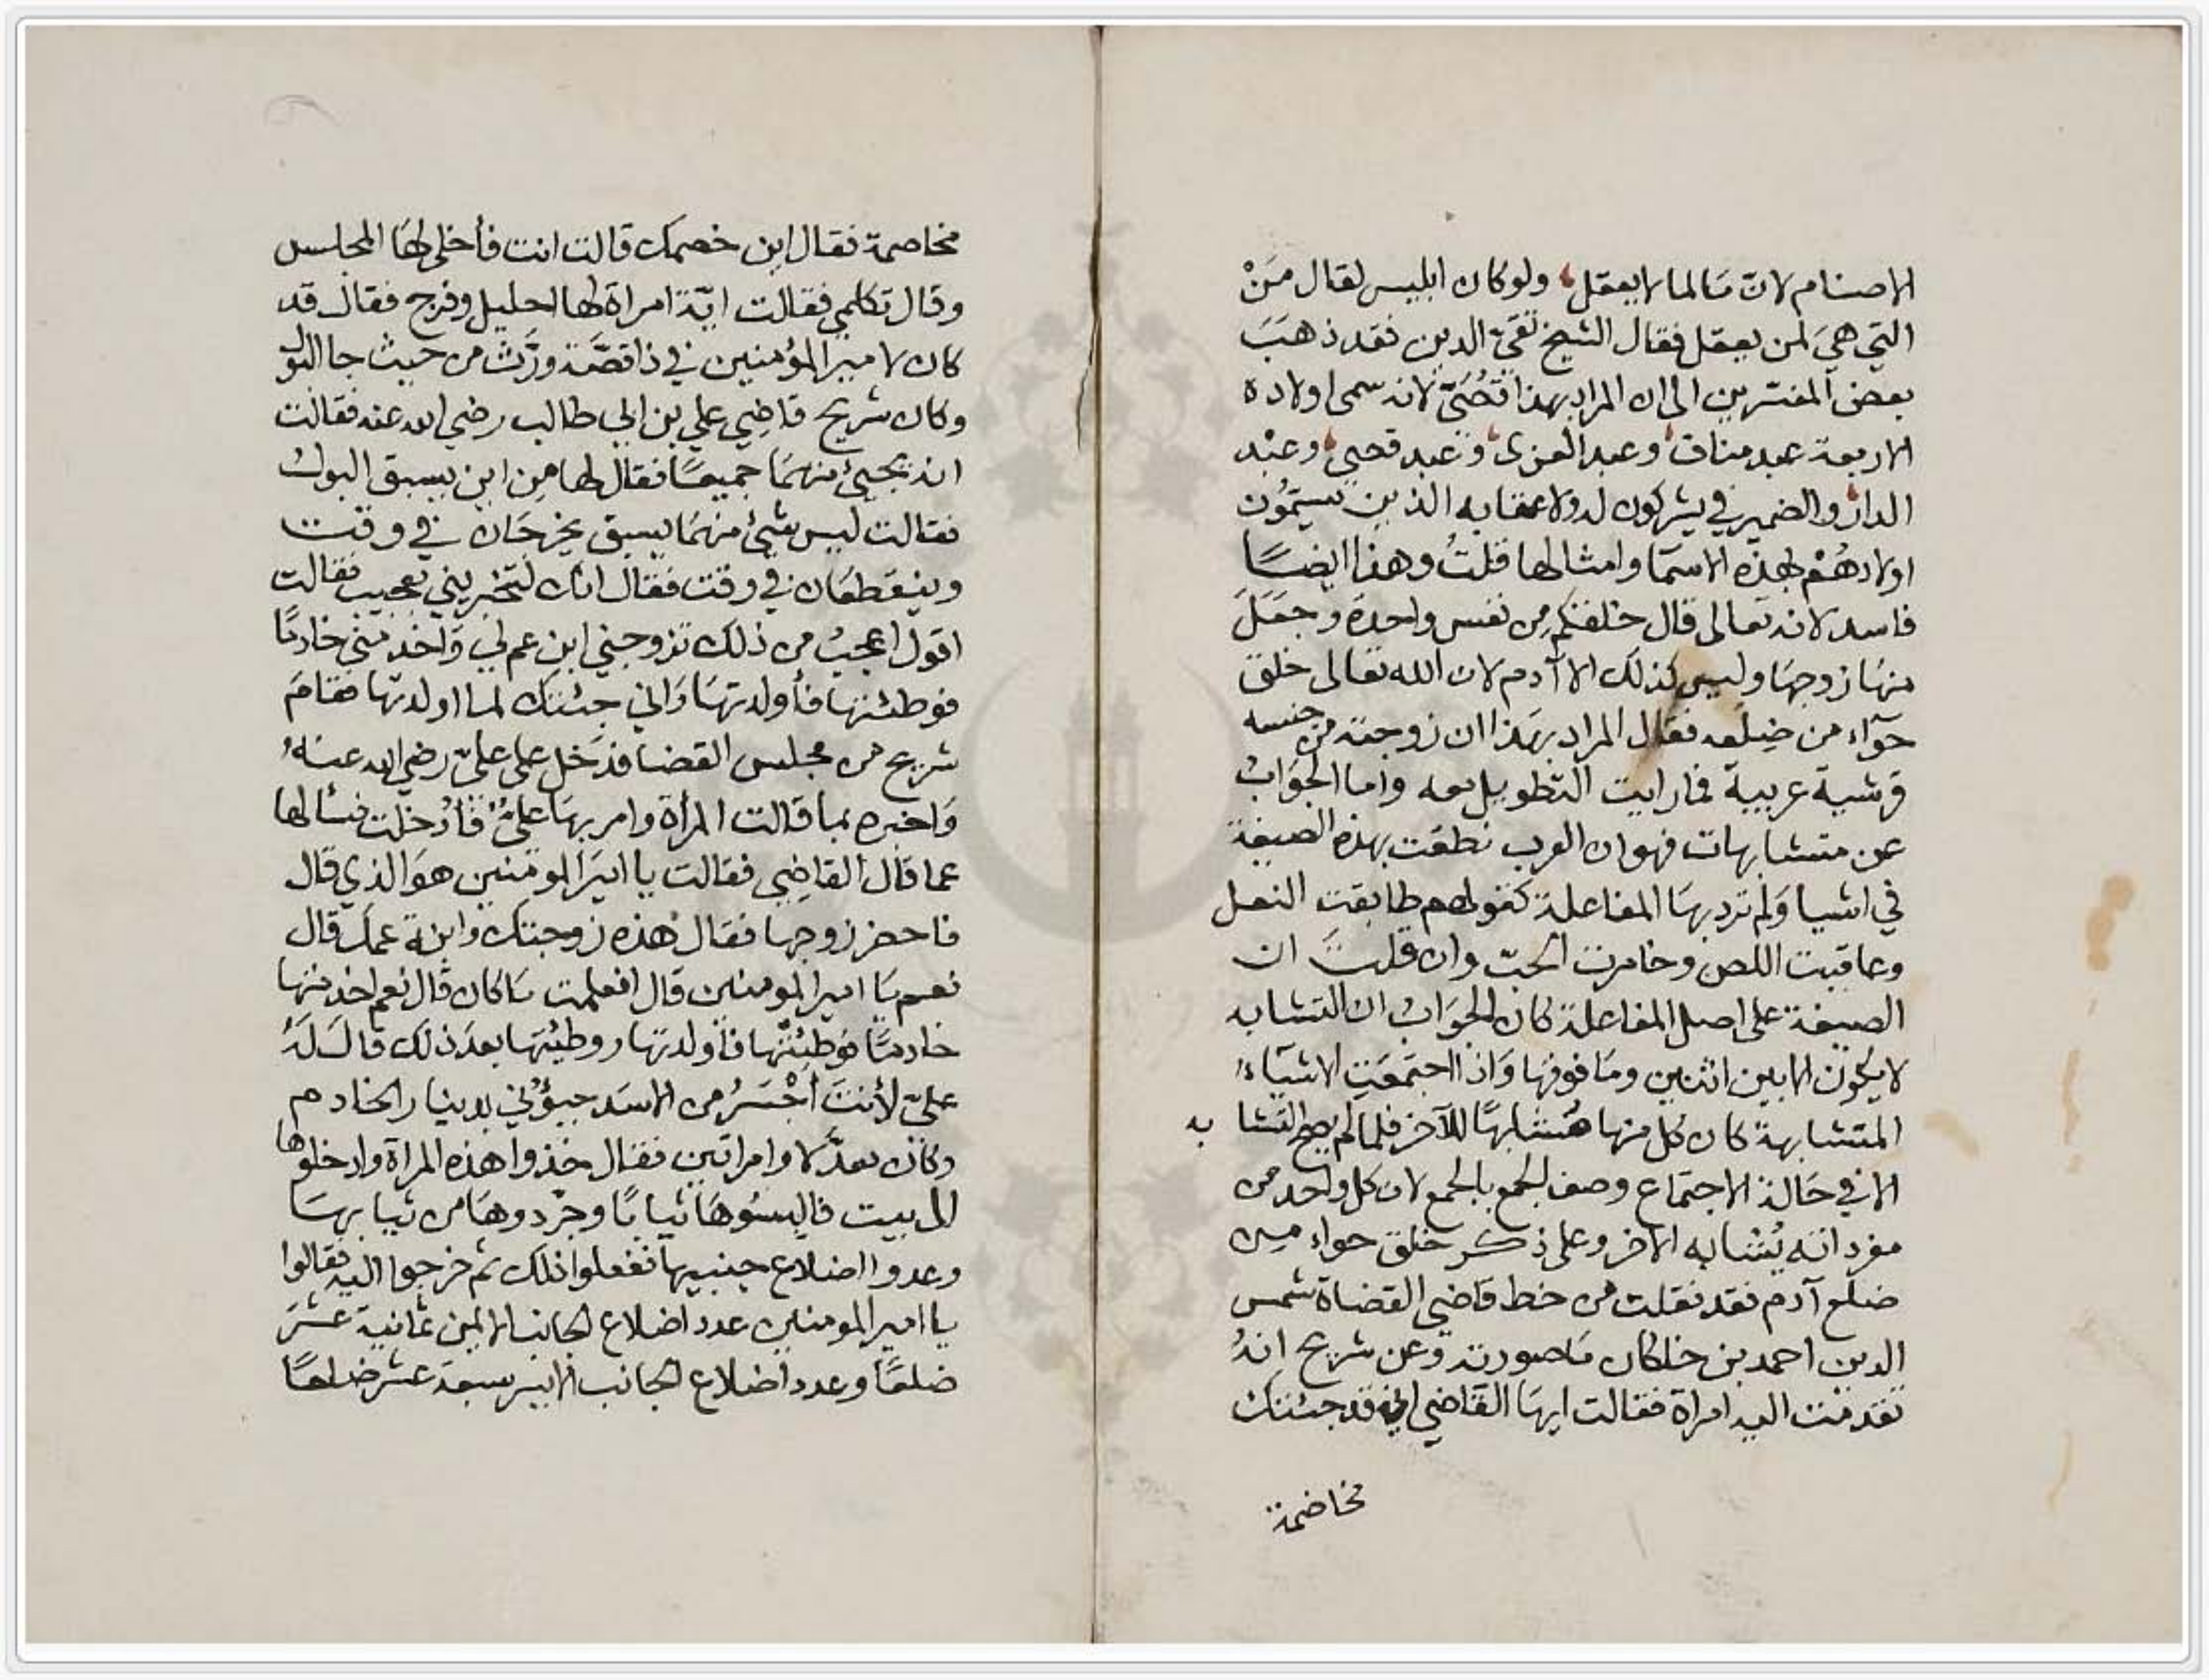 الاصنام لان ما لما لا يعقل ولو كان ابليس لقال مَنْ
التي هيَ لمن يعقل فقال الشيخ تقيّ الدين فقد ذهبَ
بعض المفسّرين الى ان المراد بهذا قُصَيّ لانه سمى اولاده
الاربعة عبد مناف وعبد العزى وعبد قصي وعبْد
الدار والضمير في يشركون له ولاعقابه الذين يسمّون
اولادهُمْ بهذه الاسمَا وامثالها قلتُ وهذا ايضًا
فاسد لانه تعالى قال خلقكم مِن نفس واحدة وجَعَلَ
منهَا زوجهَا وليس كذلك الا آدم لان الله تعالى خلق
حوّاء من ضِلعه فقال المراد بهَذا ان زوجته من جنسه
قرشية عربية فما رايت التطويل معه واما الجوَابُ
عن متشابهات فهو ان العرب نطقت بهذه الصيغة
في اشيا وَلم ترد بهَا المفاعلة كقولهم طابقت النعل
وعاقبت اللص وخامرت الحبّ وان قلتَ ان
الصيغة على اصل المفاعلة كان الجوَابُ ان التشابه
لا يكون الا بين اثنين ومَا فوقها وَاذا اجتمعَتِ الاشيَاءُ
المتشابهة كان كل منها مُشَابهًا للآخر فلما لم يصح التشابه
الا في حَالة الاجتماع وصف الجمع بالجمع لان كل واحد من
مفرداته يُشابه الاخر وعلى ذكر خلق حواء من
ضلع آدم فقد نقلت من خط قاضي القضاة شمس
الدين احمد بن خلكان مَا صورته وعن شريح انهُ
تقدمَت اليه امراة فقالت ايهَا القاضي اني قد جئتك
مخاصمة
مخاصمة فقال اين خصمك قالت انت فأخلى لهَا المجلس
وقال تكلمي فقالت انّي امراة لها احليل وفرج فقال قد
كان لامير المؤمنين في ذا قصّة ورَّث من حيث جا البول
وكان شريح قاضِي علي بن ابي طالب رضي الله عنه فقالت
انه يجيئ منهمَا جميعًا فقال لها مِن اين يسبق البولُ
فقالت ليس شيئ منهمَا يسبق يخرجَان في وقت
وينقطعَان في وقت فقال انك لتخبريني بعجيب فقالت
اقول اعجبُ من ذلك تزوجني ابن عم لي وَاخدمني خادمًا
فوطئتها فأولدتهَا وَاني جئتك لما اولدتها فقامَ
شريح من مجلس القضا فدَخل على عليّ رضي الله عنهُ
وَاخبره بما قالت المرأة وامر بهَا عليٌّ فأدخلت فسألها
عما قال القاضِي فقالت يا اميرَ المومنين هوَ الذي قال
فاحضر زوجها فقال هذه زوجتك وابنة عمك قال
نعم يَا امير المومنين قال افعلمت مَا كان قال نعم اخدمتها
خادمًا فوَطِئتْها فأولدتها ووطيْتها بعدَ ذلك قالَ لَهُ
عليّ لأنتَ أجْسَرُ من الاسَد جيؤُني بدينار الخادم
وكان معدَّلا وامراتين فقال خذوا هذه المراة وادخلوها
الى بيت فالبسُوهَا ثيابًا وجرّدوهَا من ثيابهَا
وعدوا اضلاع جنبيها ففعلوا ذلك ثم خرجوا اليه فقالوا
يا امير المومنين عدد اضلاع الجانب الايمن ثمانية عشَرَ
ضلعًا وعدد اضلاع الجانب الايسر سبعة عشر ضلعًا